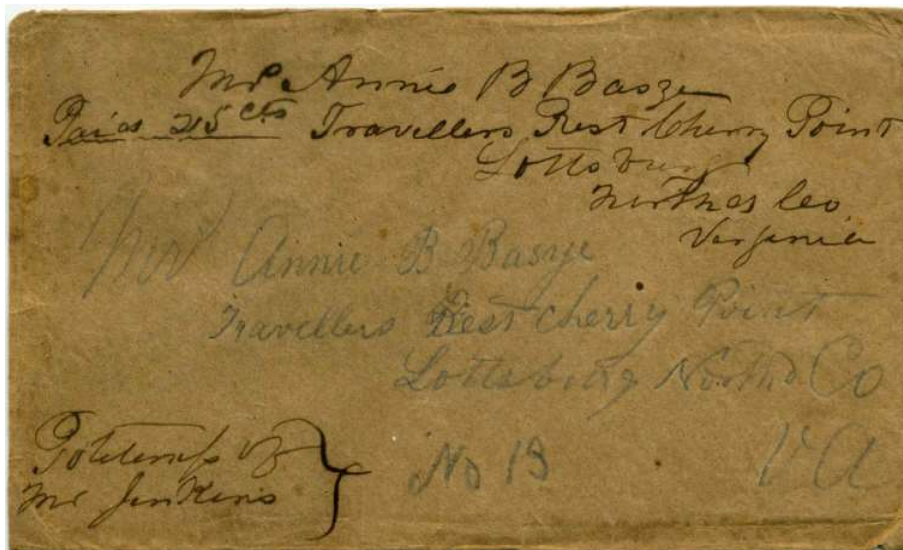 Mrs Annie B Basye
Paid 25 cts Travellers Rest Cherry Point
Lottsburg
Northd Co
Virginia
Mrs Annie B Basye
Travellers Rest cherry Point
Lottsburg North'd Co
VA
No 13
Mr Jenkins